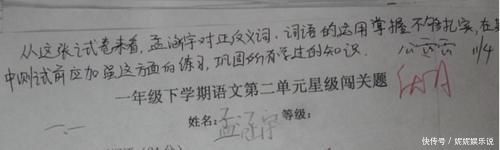 从这张试卷来看,孟涵宇对正反义词、词语的运用掌握不够扎实,在
中测试前应加强这方面的练习,巩固所有学过的知识.
11/4
一年级下学期语文第二单元星级闯关题
姓名:孟涵宇 等级:
快传号 / 妮妮娱乐说